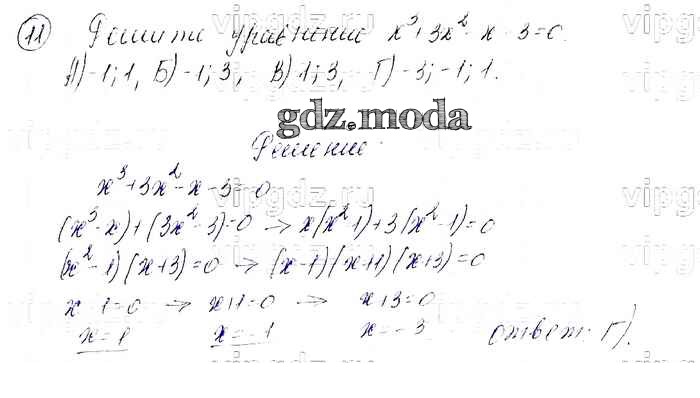 11 Решити уравнение x³+3x²-x-3=0.
А)-1; 1, Б)-1; 3, В) 1; 3, Г)-3; -1; 1.
gdz.moda
Решение.
x³+3x²-x-3=0
(x³-x)+(3x²-3)=0 → x(x²-1)+3(x²-1)=0
(x²-1)(x+3)=0 → (x-1)(x+1)(x+3)=0
x-1=0 → x+1=0 → x+3=0
x=1 x=-1 x=-3 ответ: Г).
vipgdz.ru